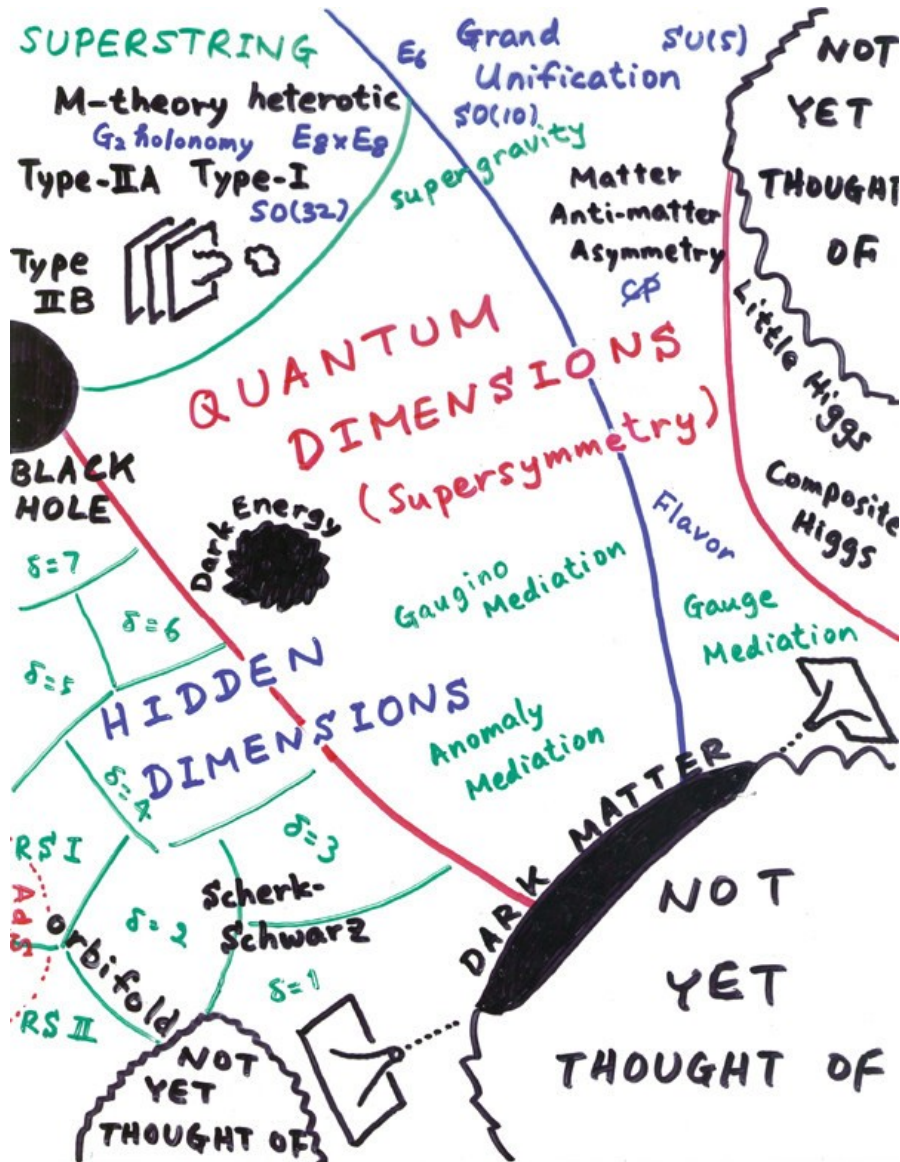 SUPERSTRING
M-theory heterotic
G₂ holonomy E₈×E₈
Type-IIA Type-I
SO(32)
Type
IIB
E₆
Grand
Unification
SU(5)
SO(10)
supergravity
Matter
Anti-matter
Asymmetry
C̸P̸
NOT
YET
THOUGHT
OF
Little Higgs
Composite
Higgs
QUANTUM
DIMENSIONS
(Supersymmetry)
BLACK
HOLE
Dark Energy
Flavor
Gaugino
Mediation
Gauge
Mediation
Anomaly
Mediation
δ=7
δ=6
δ=5
HIDDEN
DIMENSIONS
δ=4
δ=3
RS I
AdS
RS II
orbifold
δ=2
Scherk-
Schwarz
δ=1
DARK MATTER
NOT
YET
THOUGHT OF
NOT
YET
THOUGHT OF